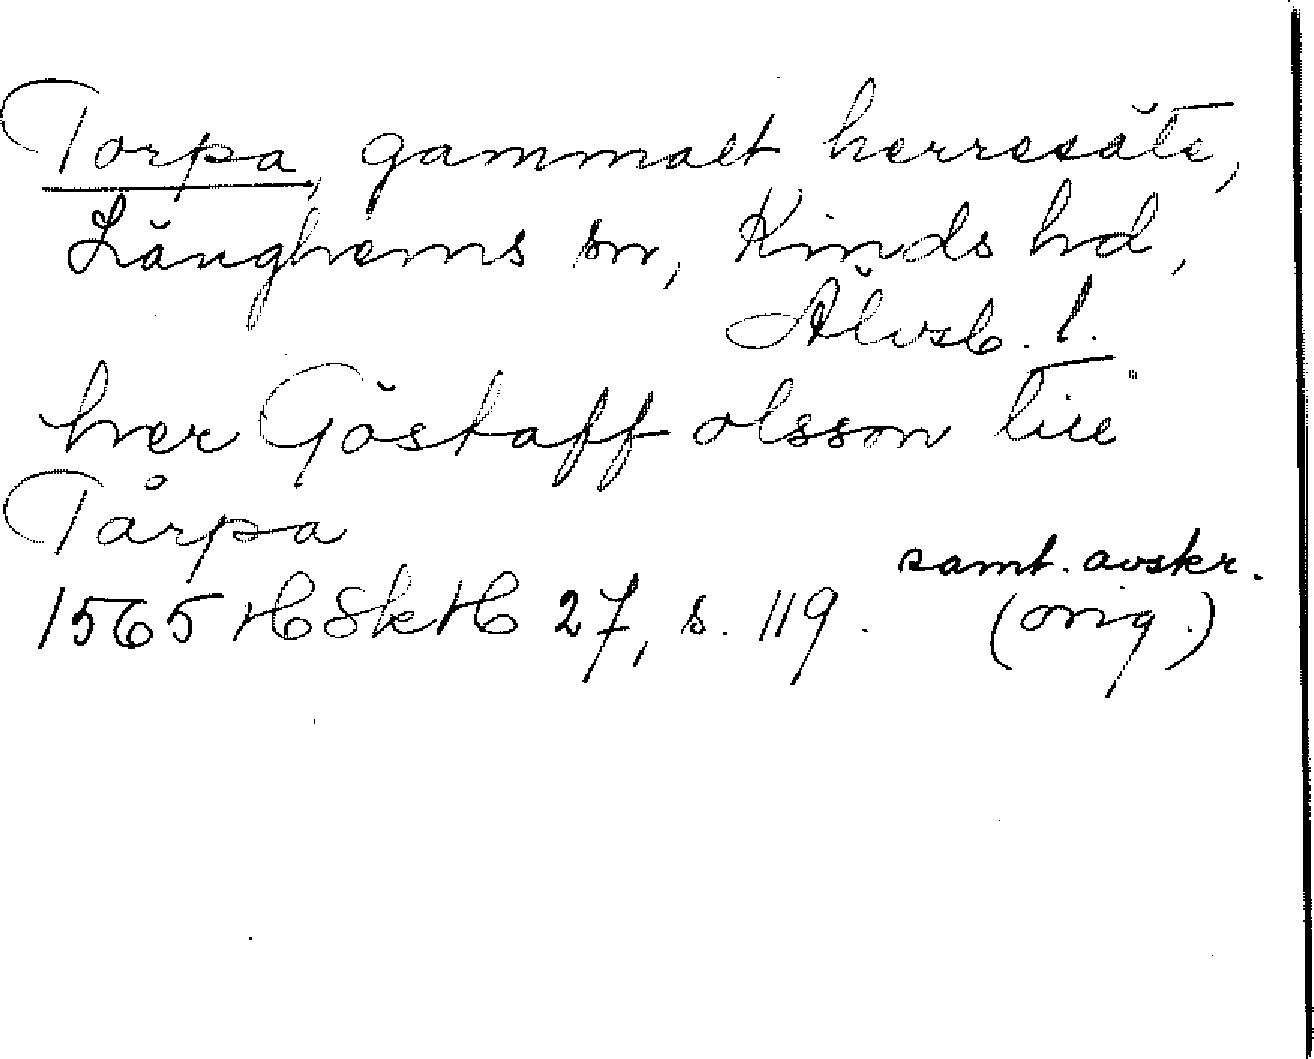 Torpa, gammalt herresäte,
Länghems sn, Kinds hd,
Älvsb. l.
hver Göstaff olsson till
Tårpa
samt. avskr.
1565 HSkH 27, s. 119. (orig.)